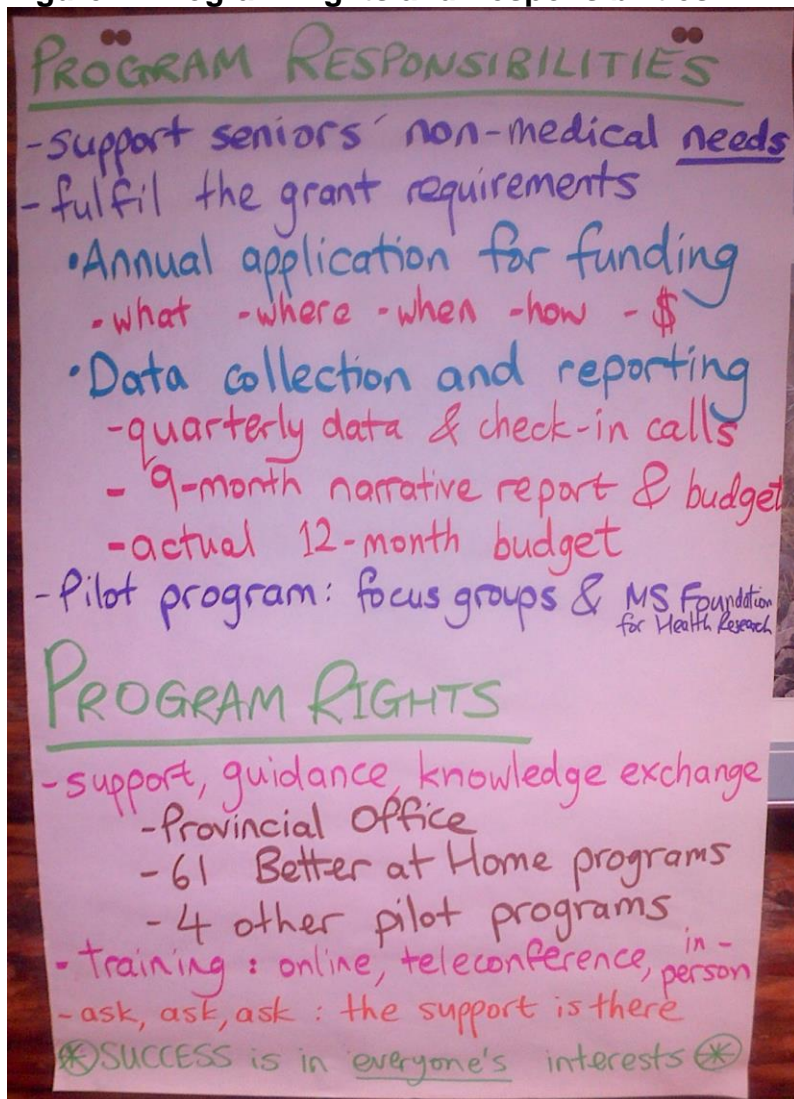 PROGRAM RESPONSIBILITIES
-support seniors' non-medical needs
-fulfil the grant requirements
•Annual application for funding
-what -where -when -how -$
•Data collection and reporting
-quarterly data & check-in calls
- 9-month narrative report & budget
-actual 12-month budget
-Pilot program: focus groups & MS Foundation
for Health Research
PROGRAM RIGHTS
-support, guidance, knowledge exchange
-Provincial Office
-61 Better at Home programs
-4 other pilot programs
-training: online, teleconference, in-
person
-ask, ask, ask: the support is there
SUCCESS is in everyone's interests